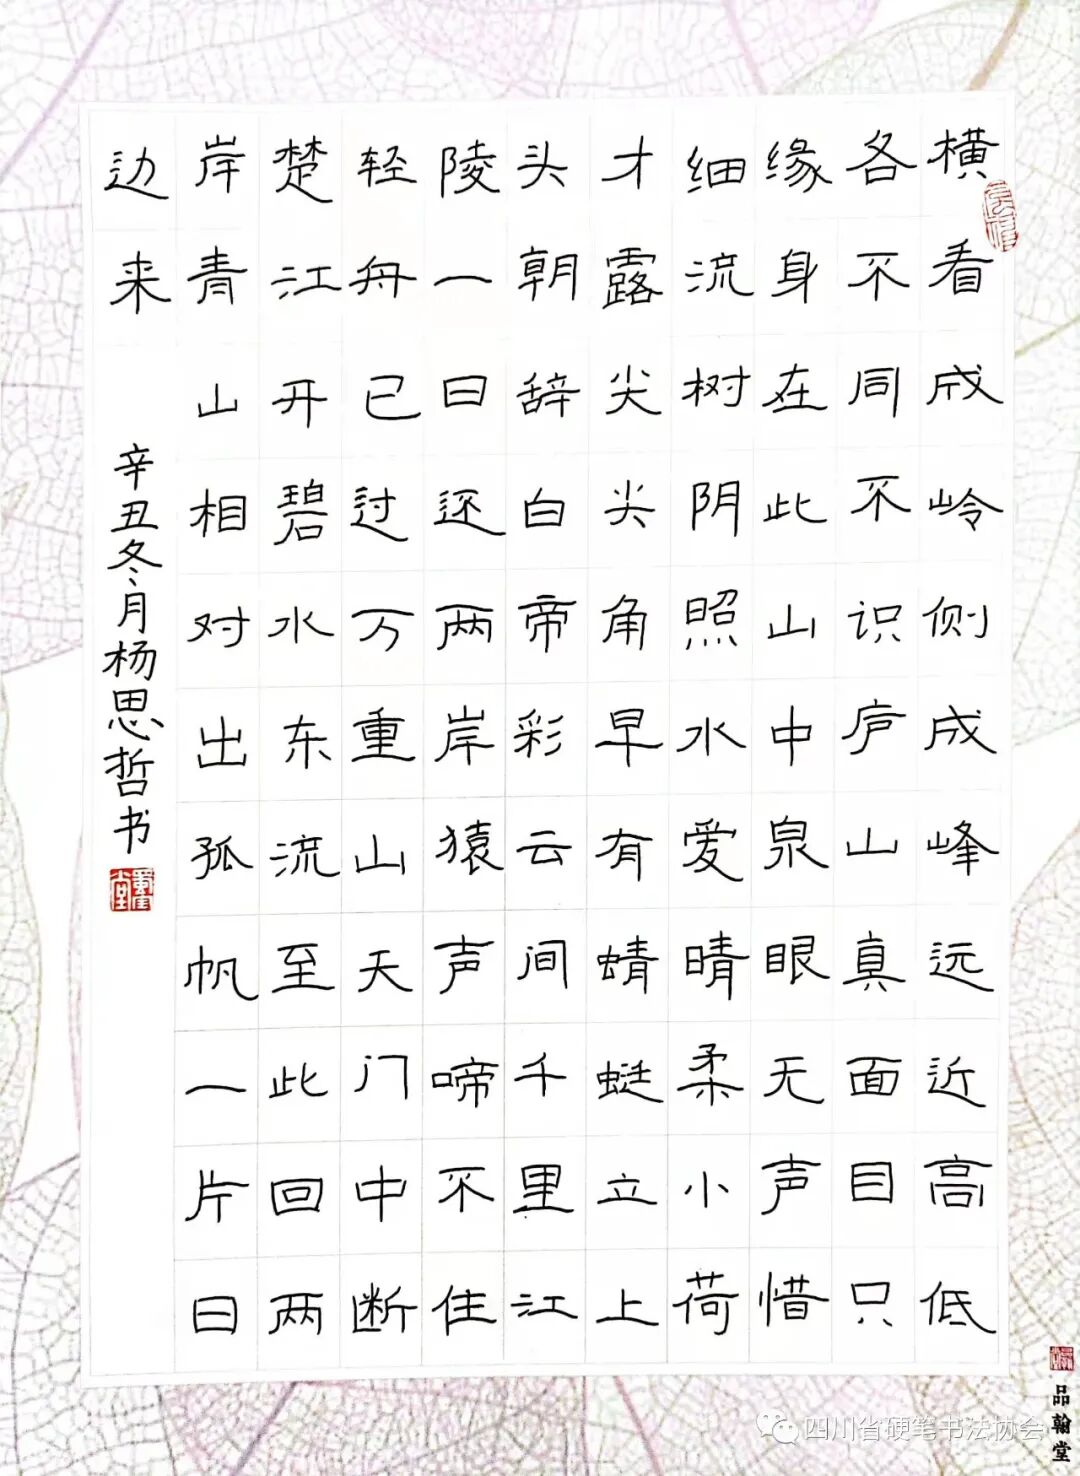 横看成岭侧成峰远近高低
各不同不识庐山真面目只
缘身在此山中泉眼无声惜
细流树阴照水爱晴柔小荷
才露尖尖角早有蜻蜓立上
头朝辞白帝彩云间千里江
陵一日还两岸猿声啼不住
轻舟已过万重山天门中断
楚江开碧水东流至此回两
岸青山相对出孤帆一片日
边来
辛丑冬月杨思哲书
品翰堂
四川省硬笔书法协会